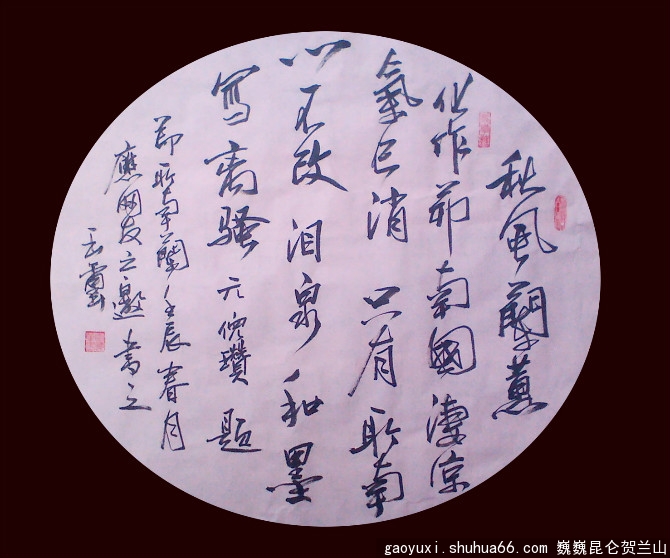 秋風蘭蕙
化作茆南國淒涼
氣已消只有所南
心不改泪泉和墨
寫离骚元倪瓚題
鄭所南蘭壬辰春月
應网友之邀書之
gaoyuxi.shuhua66.com @ 巍巍昆仑贺兰山